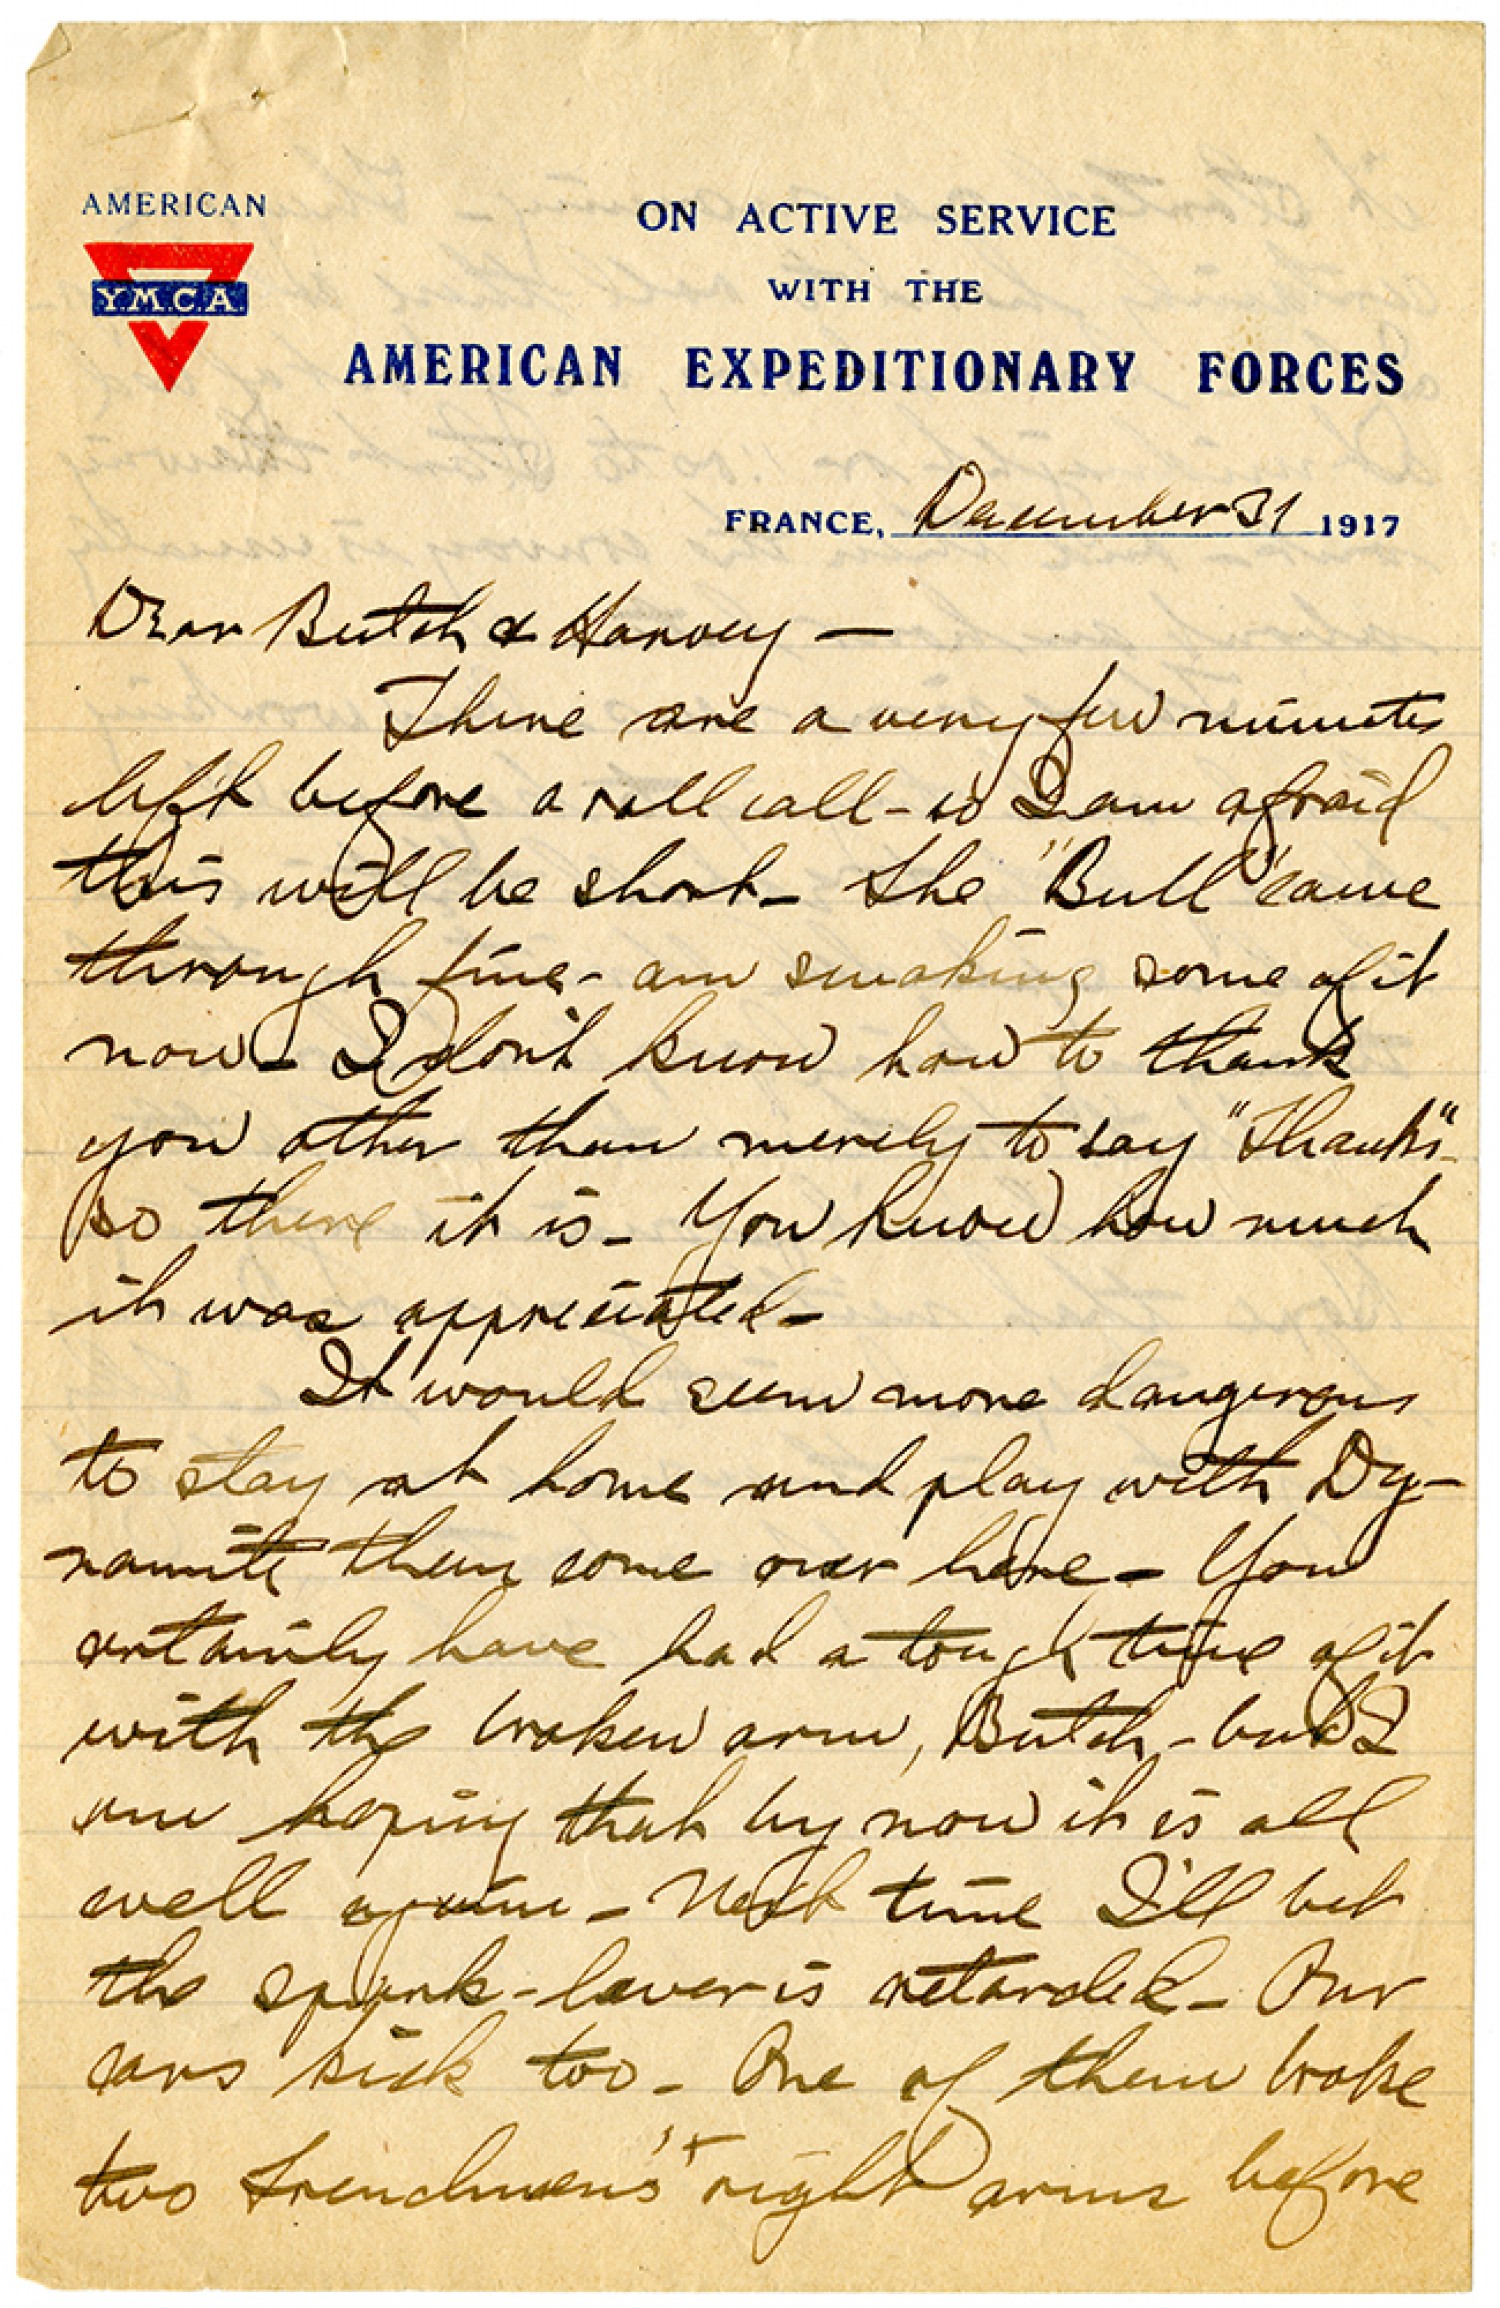 AMERICAN
Y.M.C.A.
ON ACTIVE SERVICE
WITH THE
AMERICAN EXPEDITIONARY FORCES
FRANCE, December 31 1917
Dear Butch & Harvey —
There are a very few minutes
left before a roll call - so I am afraid
this will be short - The "Bull" came
through fine - am smoking some of it
now - I don't know how to thank
you other than merely to say "Thanks" -
so there it is - You know how much
it was appreciated -
It would seem more dangerous
to stay at home and play with Dy-
namite than come over here - You
certainly have had a tough time of it
with the broken arm, Butch - but I
am hoping that by now it is all
well again - Next time I'll bet
the spark-lever is retarded - Our
cars kick too - One of them broke
two Frenchmen's right arms before